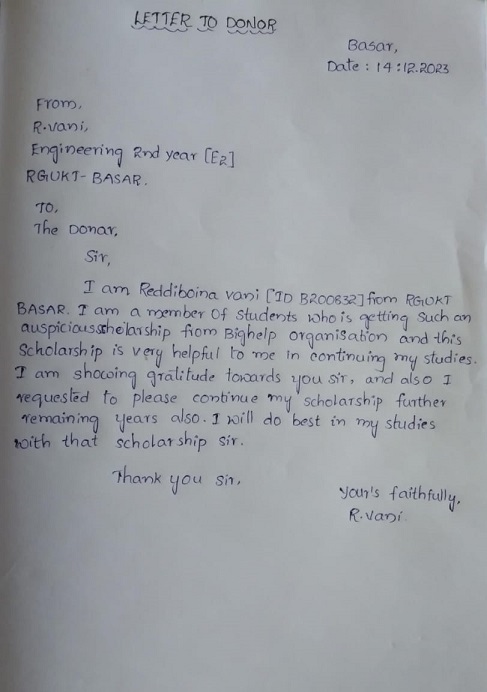 LETTER TO DONOR
Basar,
Date : 14:12.2023
From,
R.vani,
Engineering 2nd year [E2]
RGUKT-BASAR.
To,
The Donar,
Sir,
I am Reddiboina vani [ID B200832] from RGUKT
BASAR. I am a member of students who is getting such an
auspicious scholarship from Bighelp organisation and this
Scholarship is very helpful to me in continuing my studies.
I am showing gratitude towards you sir, and also I
requested to please continue my scholarship further
remaining years also. I will do best in my studies
with that scholarship sir.
Thank you sir,
Your's faithfully,
R.vani